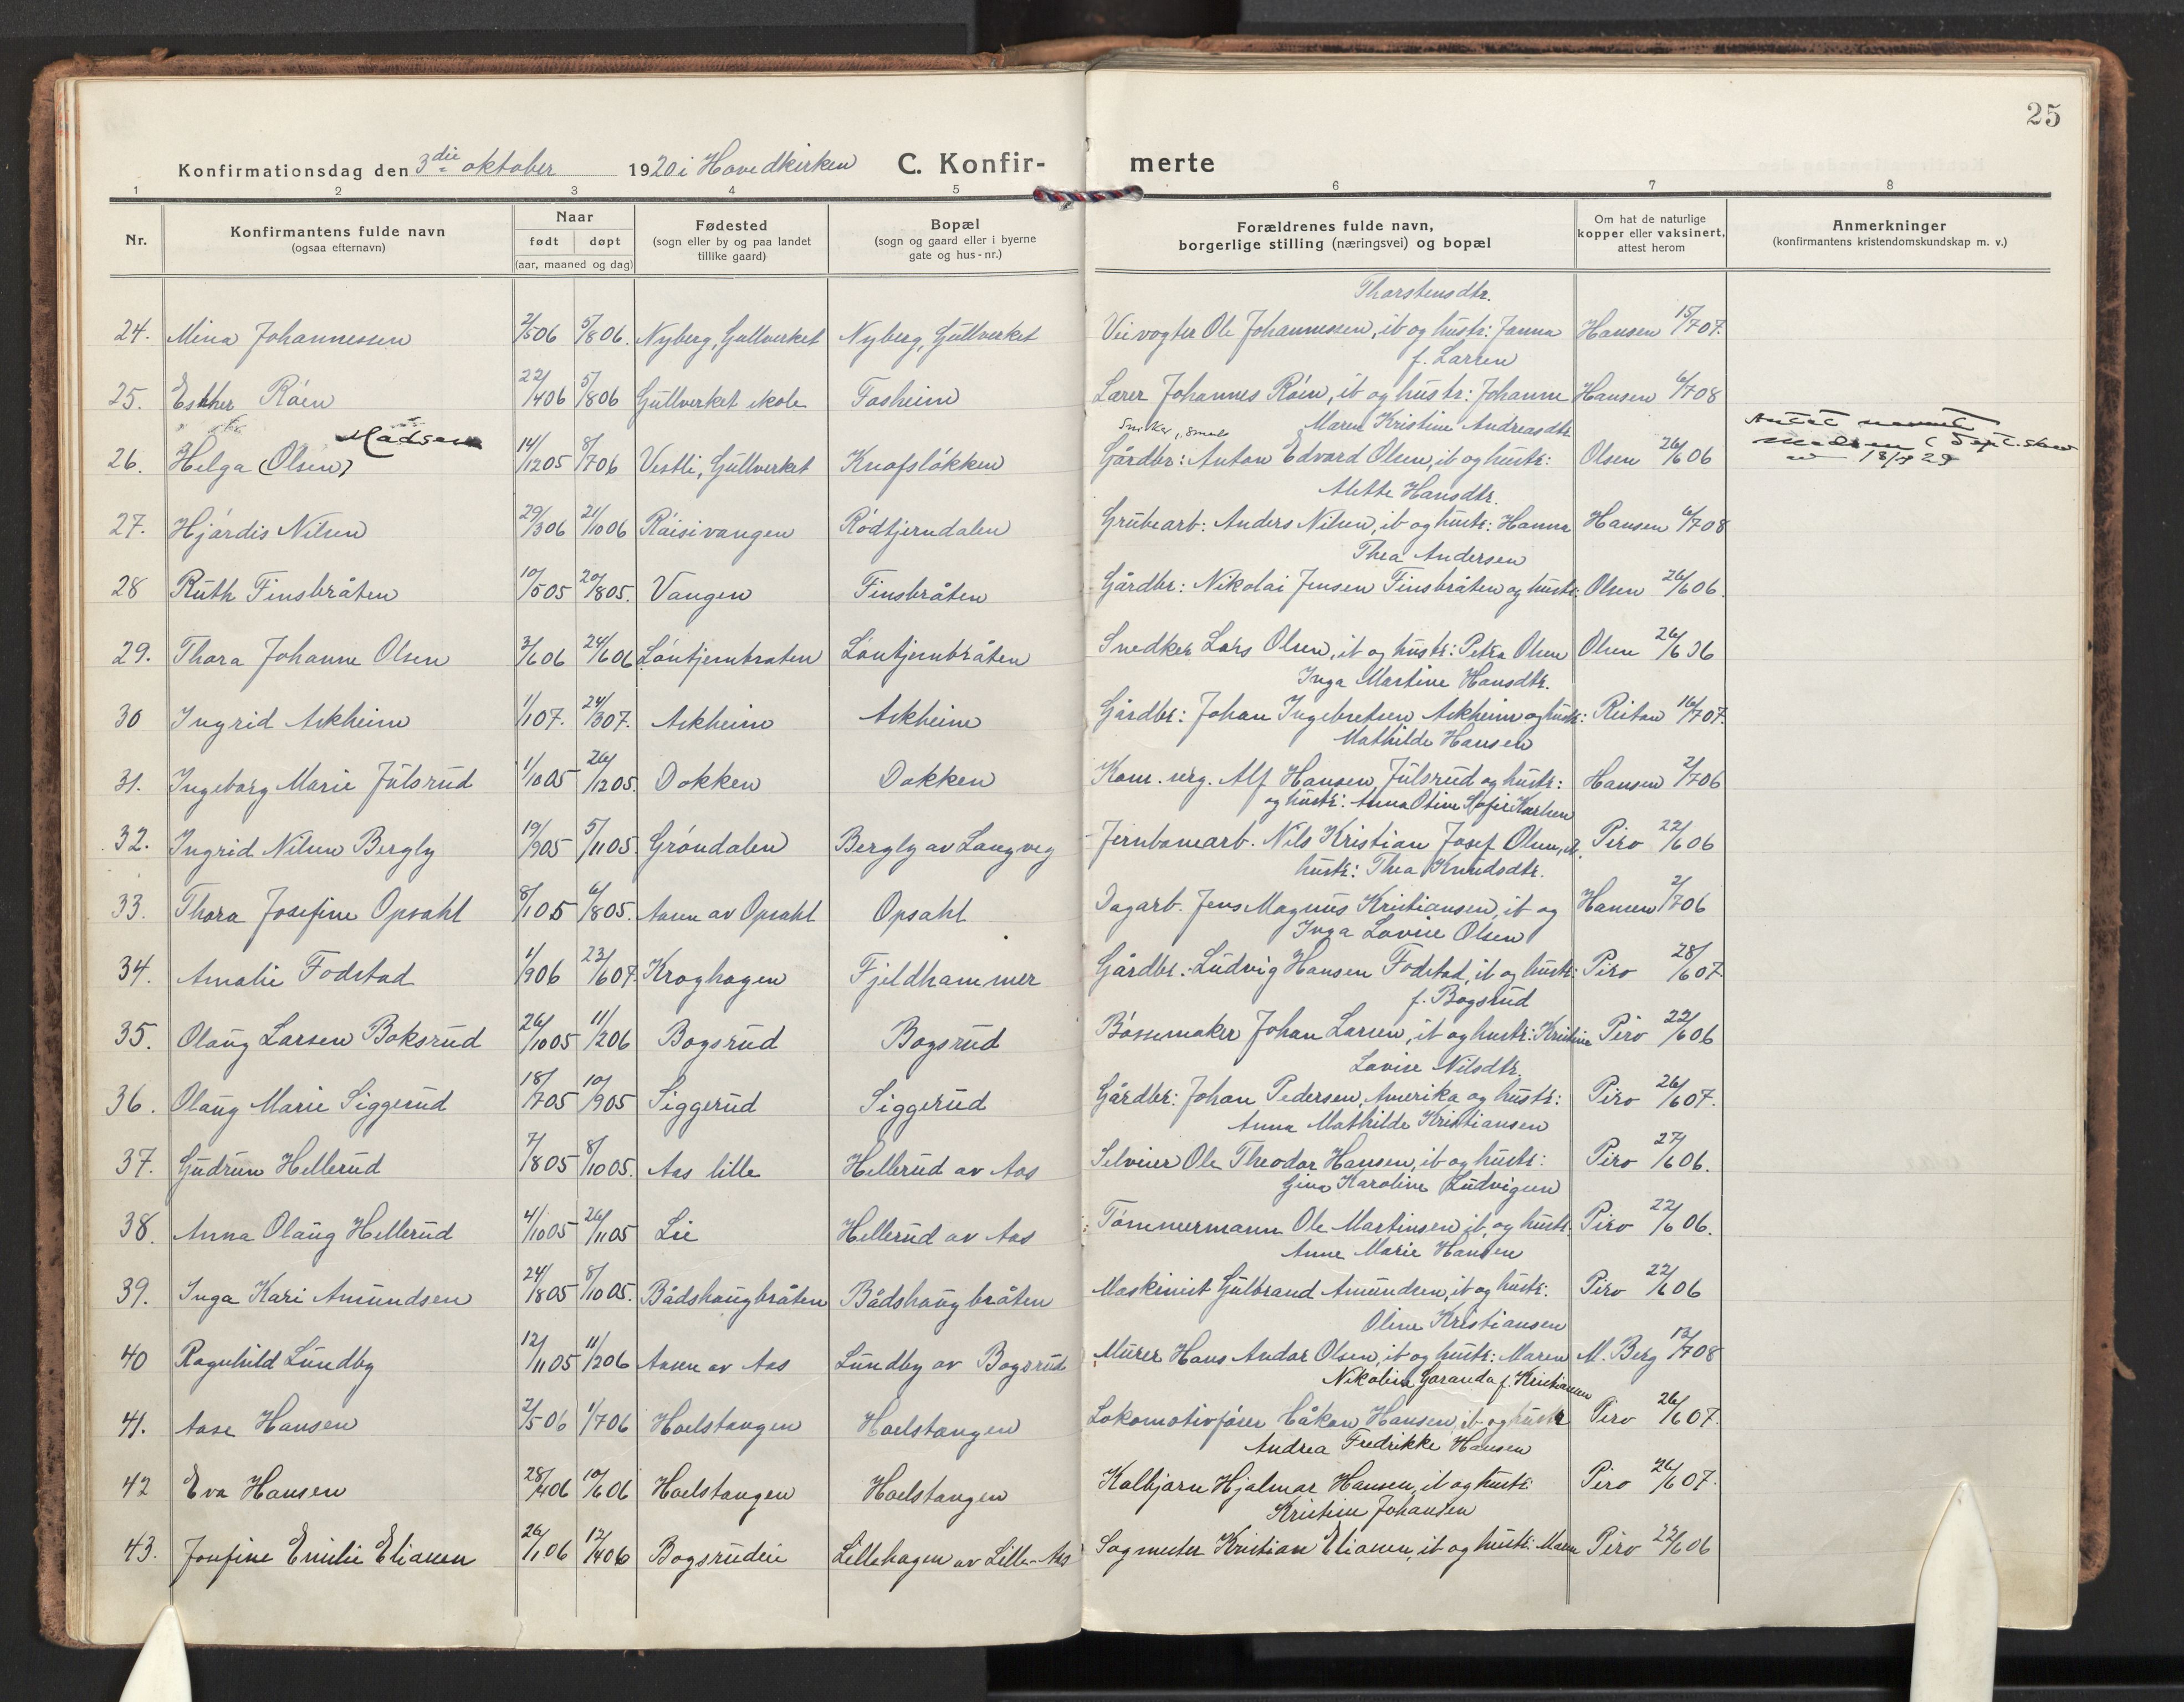 25
Konfirmationsdag den 3die oktober 1920 i Hovedkirken C. Konfir- merte
1 2 3 4 5 6 7 8
Nr.
Konfirmantens fulde navn
(ogsaa efternavn)
Naar
født døpt
(aar, maaned og dag)
Fødested
(sogn eller by og paa landet
tillike gaard)
Bopæl
(sogn og gaard eller i byerne
gate og hus-nr.)
Forældrenes fulde navn,
borgerlige stilling (næringsvei) og bopæl
Om hat de naturlige
kopper eller vaksinert,
attest herom
Anmerkninger
(konfirmantens kristendomskundskap m. v.)
Thorstensdtr.
24. Mina Johannessen 2/5 06 5/8 06. Nyberg, Gullverket Nyberg, Gullverket Veivogter Ole Johannessen, ib og hustr: Janna Hansen 15/7 07.
f. Larsen
25. Esther Röen 22/4 06 5/8 06 Gullverket skole Fosheim Lærer Johannes Röen, ib og hustr: Johanne Hansen 6/7 08
Madsen
Maren Kristine Andreasdtr
26. Helga (Olsen) 14/12 05 8/7 06 Vestli, Gullverket Knofslökken Gårdbr: Anton Edvard Olsen, ib og hustr: Olsen 26/6 06
Antat navnet
Madsen
18/7 29
Alette Hansdtr.
27. Hjördis Nilsen 29/3 06 21/10 06 Räisivangen Rödtjerndalen Grubearb: Anders Nilsen, ib og hustr: Hanna Hansen 6/7 08
Thea Andersen
28 Ruth Finsbråten 10/5 05 20/8 05. Vangen Finsbråten Gårdbr: Nikolai Jensen Finsbråten og hustr: Olsen 26/6 06.
29. Thora Johanne Olsen 3/6 06 24/6 06 Löntjernbraten Löntjernbråten Snedker Lars Olsen, ib og hustr: Petra Olsen Olsen 26/6 06
Inga Martine Hansdtr.
30 Ingrid Askheim 1/1 07. 24/3 07. Askheim Askheim Gårdbr: Johan Ingebretsen Askheim og hustr: Ristan 16/7 07.
Mathilde Hansen
31. Ingeborg Marie Julsrud 1/10 05 26/12 05. Dokken Dokken Kom. erg. Alf Hansen Julsrud og hustr: Hansen 2/7 06
og hustr: Anna Otine Sofie Karlsen
32. Ingrid Nilsen Bergly 19/9 05 5/11 05 Gröndalen Bergly av Langveg Jernbanearb. Nils Kristian Josef Olsen, ib. Piro 22/6 06
hustr: Thea Knudsdtr.
33. Thora Josefine Opsahl 8/1 05 6/8 05. Aasen av Opsahl Opsahl Dagarb. Jens Magnus Kristiansen, ib og Hansen 2/7 06
Inga Lovise Olsen
34. Amalie Fodstad 1/9 06 23/6 07. Kroghagen Fjeldhammer Gårdbr. Ludvig Hansen Fodstad, ib og hustr: Piro 28/6 07
f. Bogsrud
35. Olaug Larsen Boksrud 26/10 05 11/2 06 Bogsrud Bogsrud Bössemaker Johan Larsen, ib og hustr: Kristine Piro 22/6 06
Lovise Nilsdtr.
36. Olaug Marie Siggerud 18/7 05 10/9 05 Siggerud Siggerud Gårdbr: Johan Pedersen, Amerika og hustr: Piro 26/6 07.
Anna Mathilde Kristiansen
37. Gudrun Hellerud 7/8 05 8/10 05. Aas lille Hellerud av Aas Selveier Ole Theodor Hansen, ib og hustr: Piro 27/6 06.
Gina Karoline Ludvigsen
38. Anna Olaug Hellerud 4/10 05 26/11 05 Lie Hellerud av Aas Tömmermann Ole Martinsen, ib, og hustr. Piro 22/6 06.
Anne Marie Hansen
39. Inga Kari Amundsen 24/8 05 8/10 05. Bådshaugbråten Bådshaugbråten Maskinist Gulbrand Amundsen, ib og hustr. Piro 22/6 06
Oline Kristiansen
40 Ragnhild Lundby 12/11 05 11/2 06 Aasen av Aas Lundby av Bogsrud Murer Hans Andor Olsen, ib og hustr: Maren M. Berg 13/7 08
Nikoline Garanda f. Kristiansen
41. Aase Hansen 2/5 06 1/7 06 Hoelstangen Hoelstangen Lokomotivförer Håkon Hansen, ib og hustr Piro 26/6 07.
Andrea Fredrikke Hansen
42 Eva Hansen 28/4 06 10/6 06 Hoelstangen Hoelstangen Kolbjörn Hjalmar Hansen, ib og hustr: Piro 26/6 07.
Kristine Johansen
43. Josefine Emilie Eliasen 26/1 06 12/4 06 Bogsrudeie Lillehagen av Lille-Aas Sagmester Kristian Eliasen, ib og hustr. Maren Piro 22/6 06